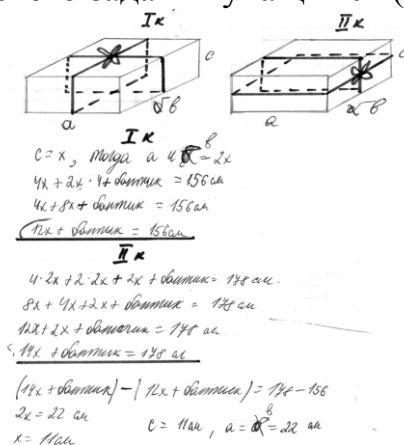 I к
II к
c
a
в
c
a
в
I к
c = x, тогда a и в = 2x
4x + 2x · 4 + бантик = 156 см
4x + 8x + бантик = 156 см
12x + бантик = 156 см
II к
4 · 2x + 2 · 2x + 2x + бантик = 178 см
8x + 4x + 2x + бантик = 178 см
12x + 2x + бантик = 178 см
14x + бантик = 178 см
(14x + бантик) - (12x + бантик) = 178 - 156
2x = 22 см
c = 11 см, a = в = 22 см
x = 11 см